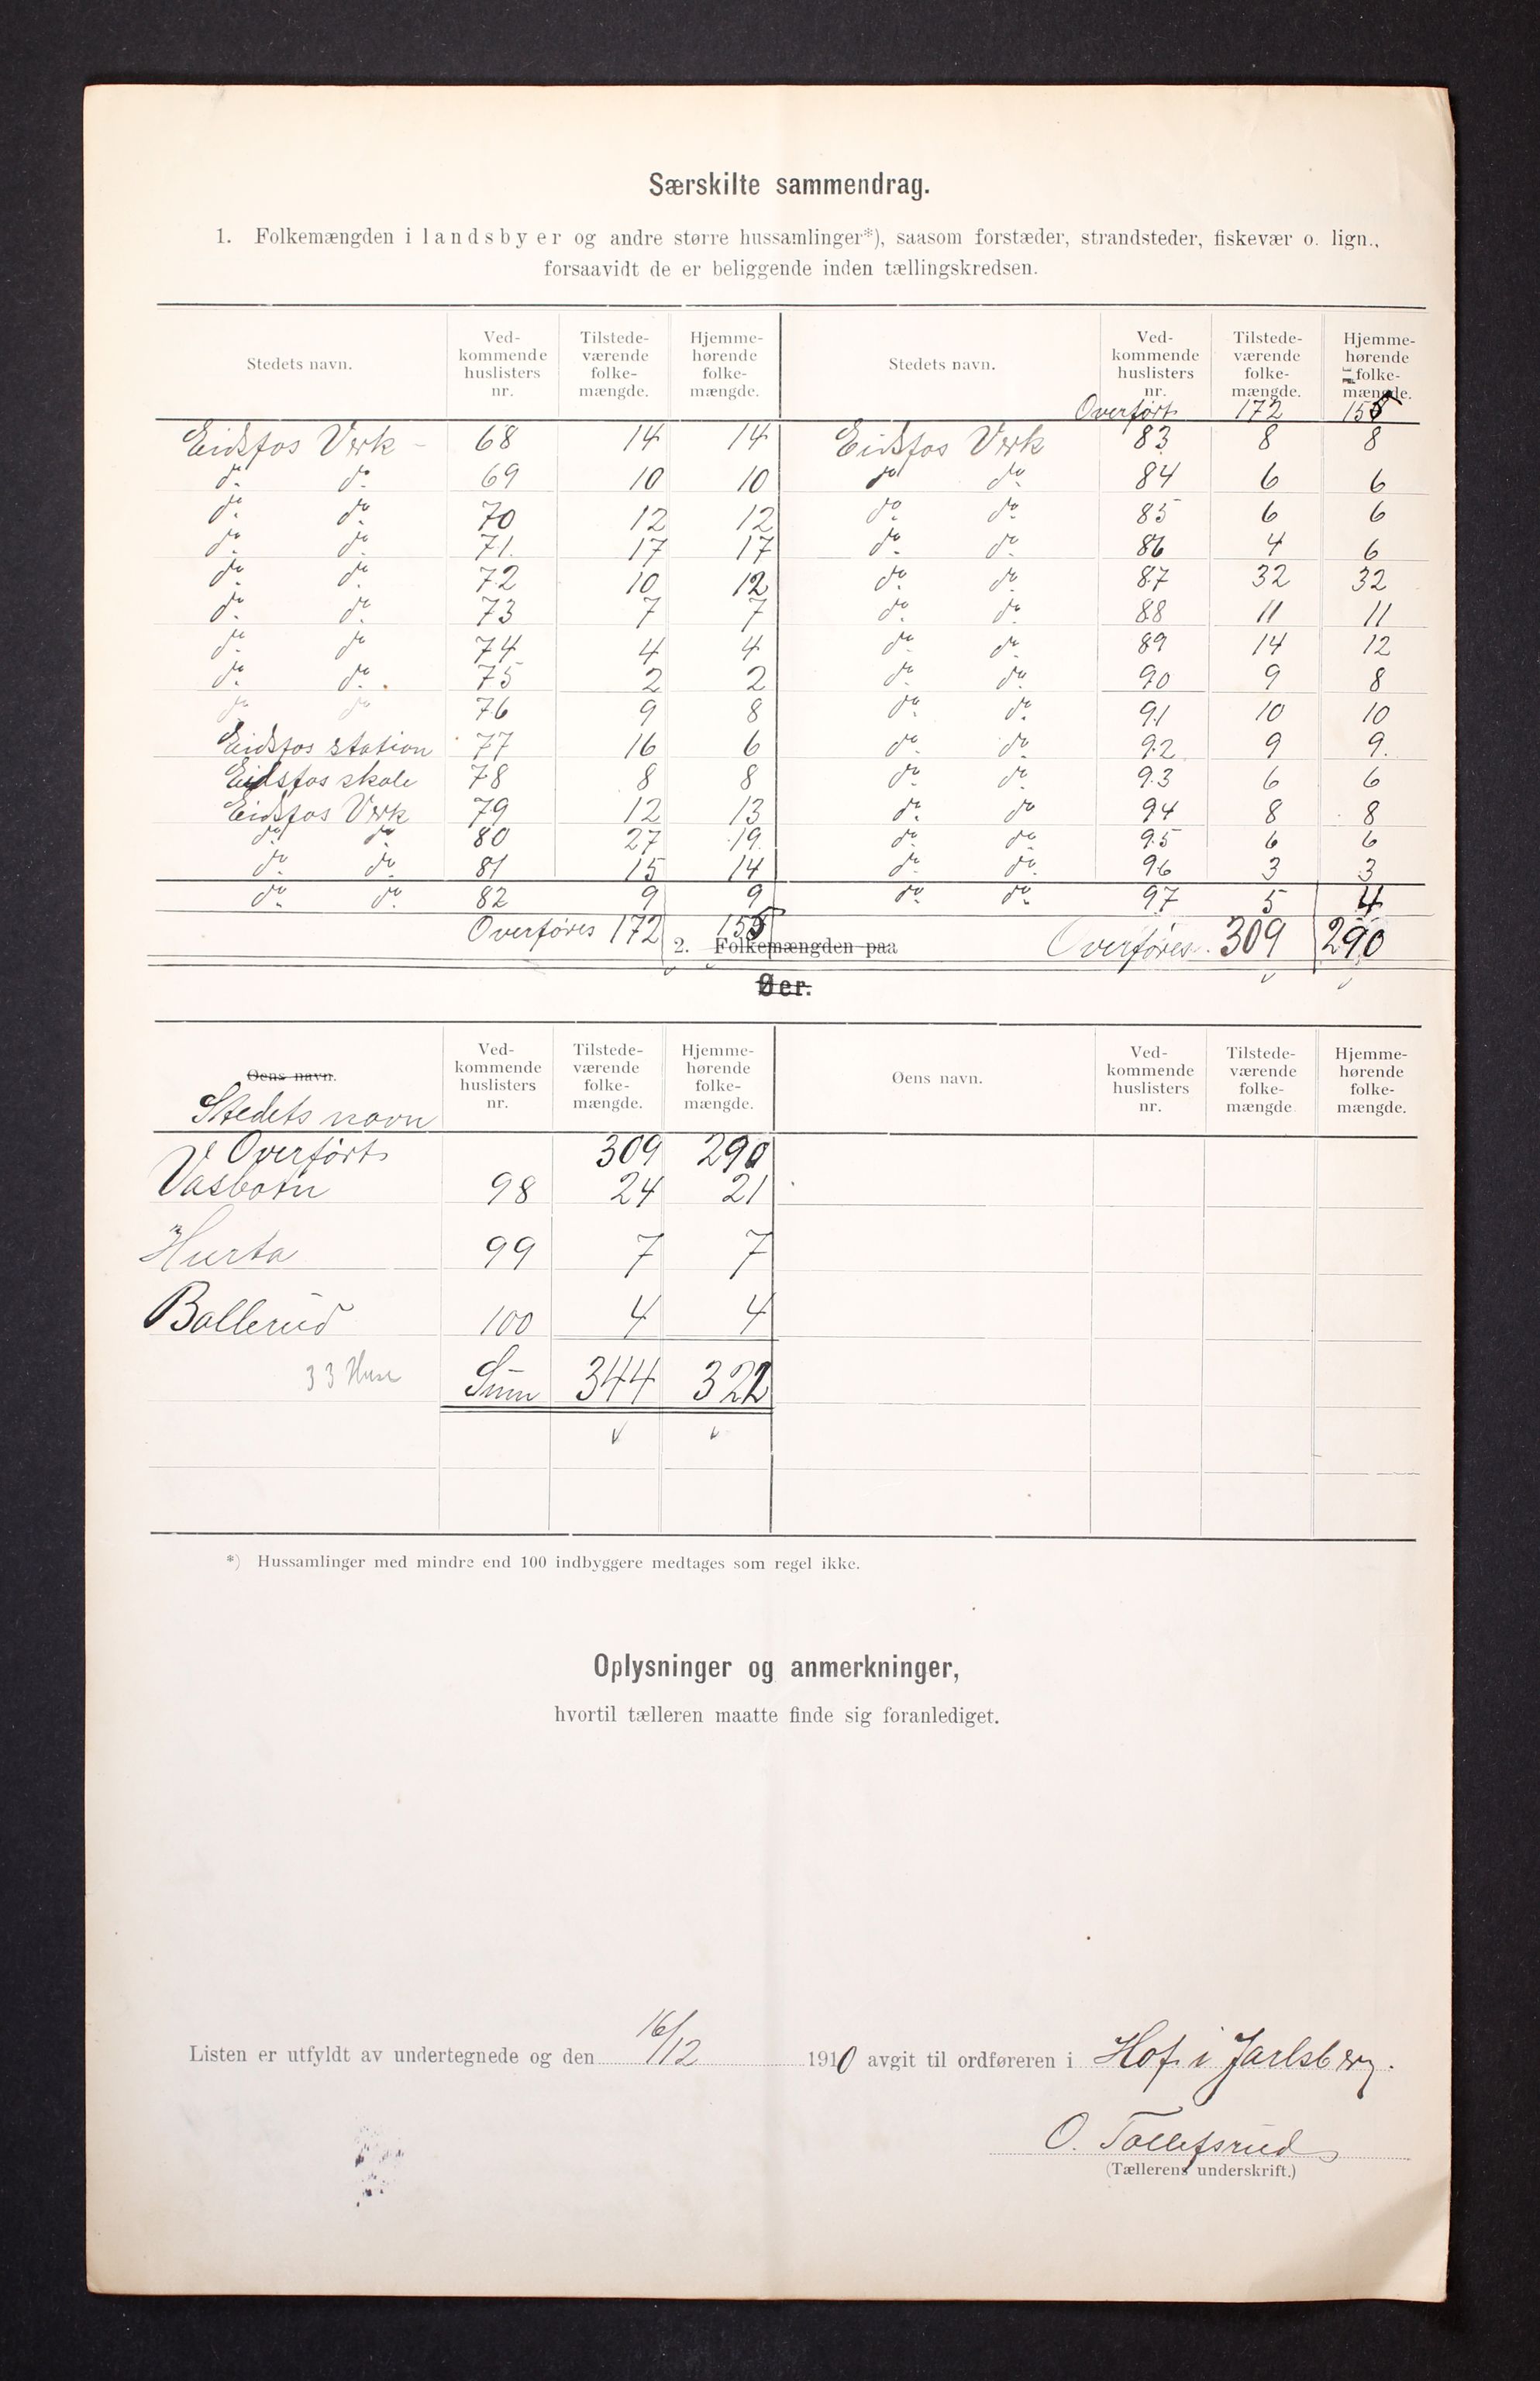 Særskilte sammendrag.
1. Folkemængden i landsbyer og andre større hussamlinger*), saasom forstæder, strandsteder, fiskevær o. lign.,
forsaavidt de er beliggende inden tællingskredsen.
Stedets navn. Ved-kommende huslisters nr. Tilstede-værende folke-mængde. Hjemme-hørende folke-mængde. Stedets navn. Ved-kommende huslisters nr. Tilstede-værende folke-mængde. Hjemme-hørende folke-mængde.
Overført 172 155
Eidsfos Verk - 68 14 14 Eidsfos Verk 83 8 8
do do 69 10 10 do do 84 6 6
do do 70 12 12 do do 85 6 6
do do 71 17 17 do do 86 4 6
do do 72 10 12 do do 87 32 32
do do 73 7 7 do do 88 11 11
do do 74 4 4 do do 89 14 12
do do 75 2 2 do do 90 9 8
do do 76 9 8 do do 91 10 10
Eidsfos station 77 16 6 do do 92 9 9
Eidsfos skole 78 8 8 do do 93 6 6
Eidsfos Verk 79 12 13 do do 94 8 8
do do 80 27 19 do do 95 6 6
do do 81 15 14 do do 96 3 3
do do 82 9 9 do do 97 5 4
Overføres 172 155 Overføres. 309 290
2. Folkemængden paa
Øer.
Øens navn. Ved-kommende huslisters nr. Tilstede-værende folke-mængde. Hjemme-hørende folke-mængde. Øens navn. Ved-kommende huslisters nr. Tilstede-værende folke-mængde Hjemme-hørende folke-mængde.
Stedets navn
Overført 309 290
Vasbotn 98 24 21
Hurta 99 7 7
Bollerud 100 4 4
33 Huse Sum 344 322
*) Hussamlinger med mindre end 100 indbyggere medtages som regel ikke.
Oplysninger og anmerkninger,
hvortil tælleren maatte finde sig foranlediget.
Listen er utfyldt av undertegnede og den 16/12 1910 avgit til ordføreren i Hof i Jarlsberg.
O. Tollefsrud
(Tællerens underskrift.)